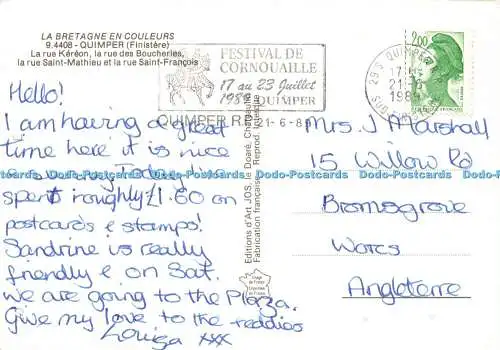 LA BRETAGNE EN COULEURS
9.4408 - QUIMPER (Finistère)
La rue Kéréon, la rue des Boucheries,
la rue Saint-Mathieu et la rue Saint-François
FESTIVAL DE
CORNOUAILLE
17 au 23 Juillet
1989 QUIMPER
QUIMPER R.P. 21-6-8
29 S QUIMPER
17H
21-6
1989
2,00
Hello!
I am having a great
time here it is nice
Today I
spent roughly £1.60 on
postcards & stamps!
Sandrine is really
friendly & on Sat.
we are going to the Plaza.
Give my love to the teddies
Louisa xxx
Editions d'Art JOS le Doaré, Châteaulin
Fabrication française. Reprod. interdite
Mrs. J Marshall
15 Willow Rd
Bromsgrove
Worcs
Angleterre
Dodo-Postcards.com